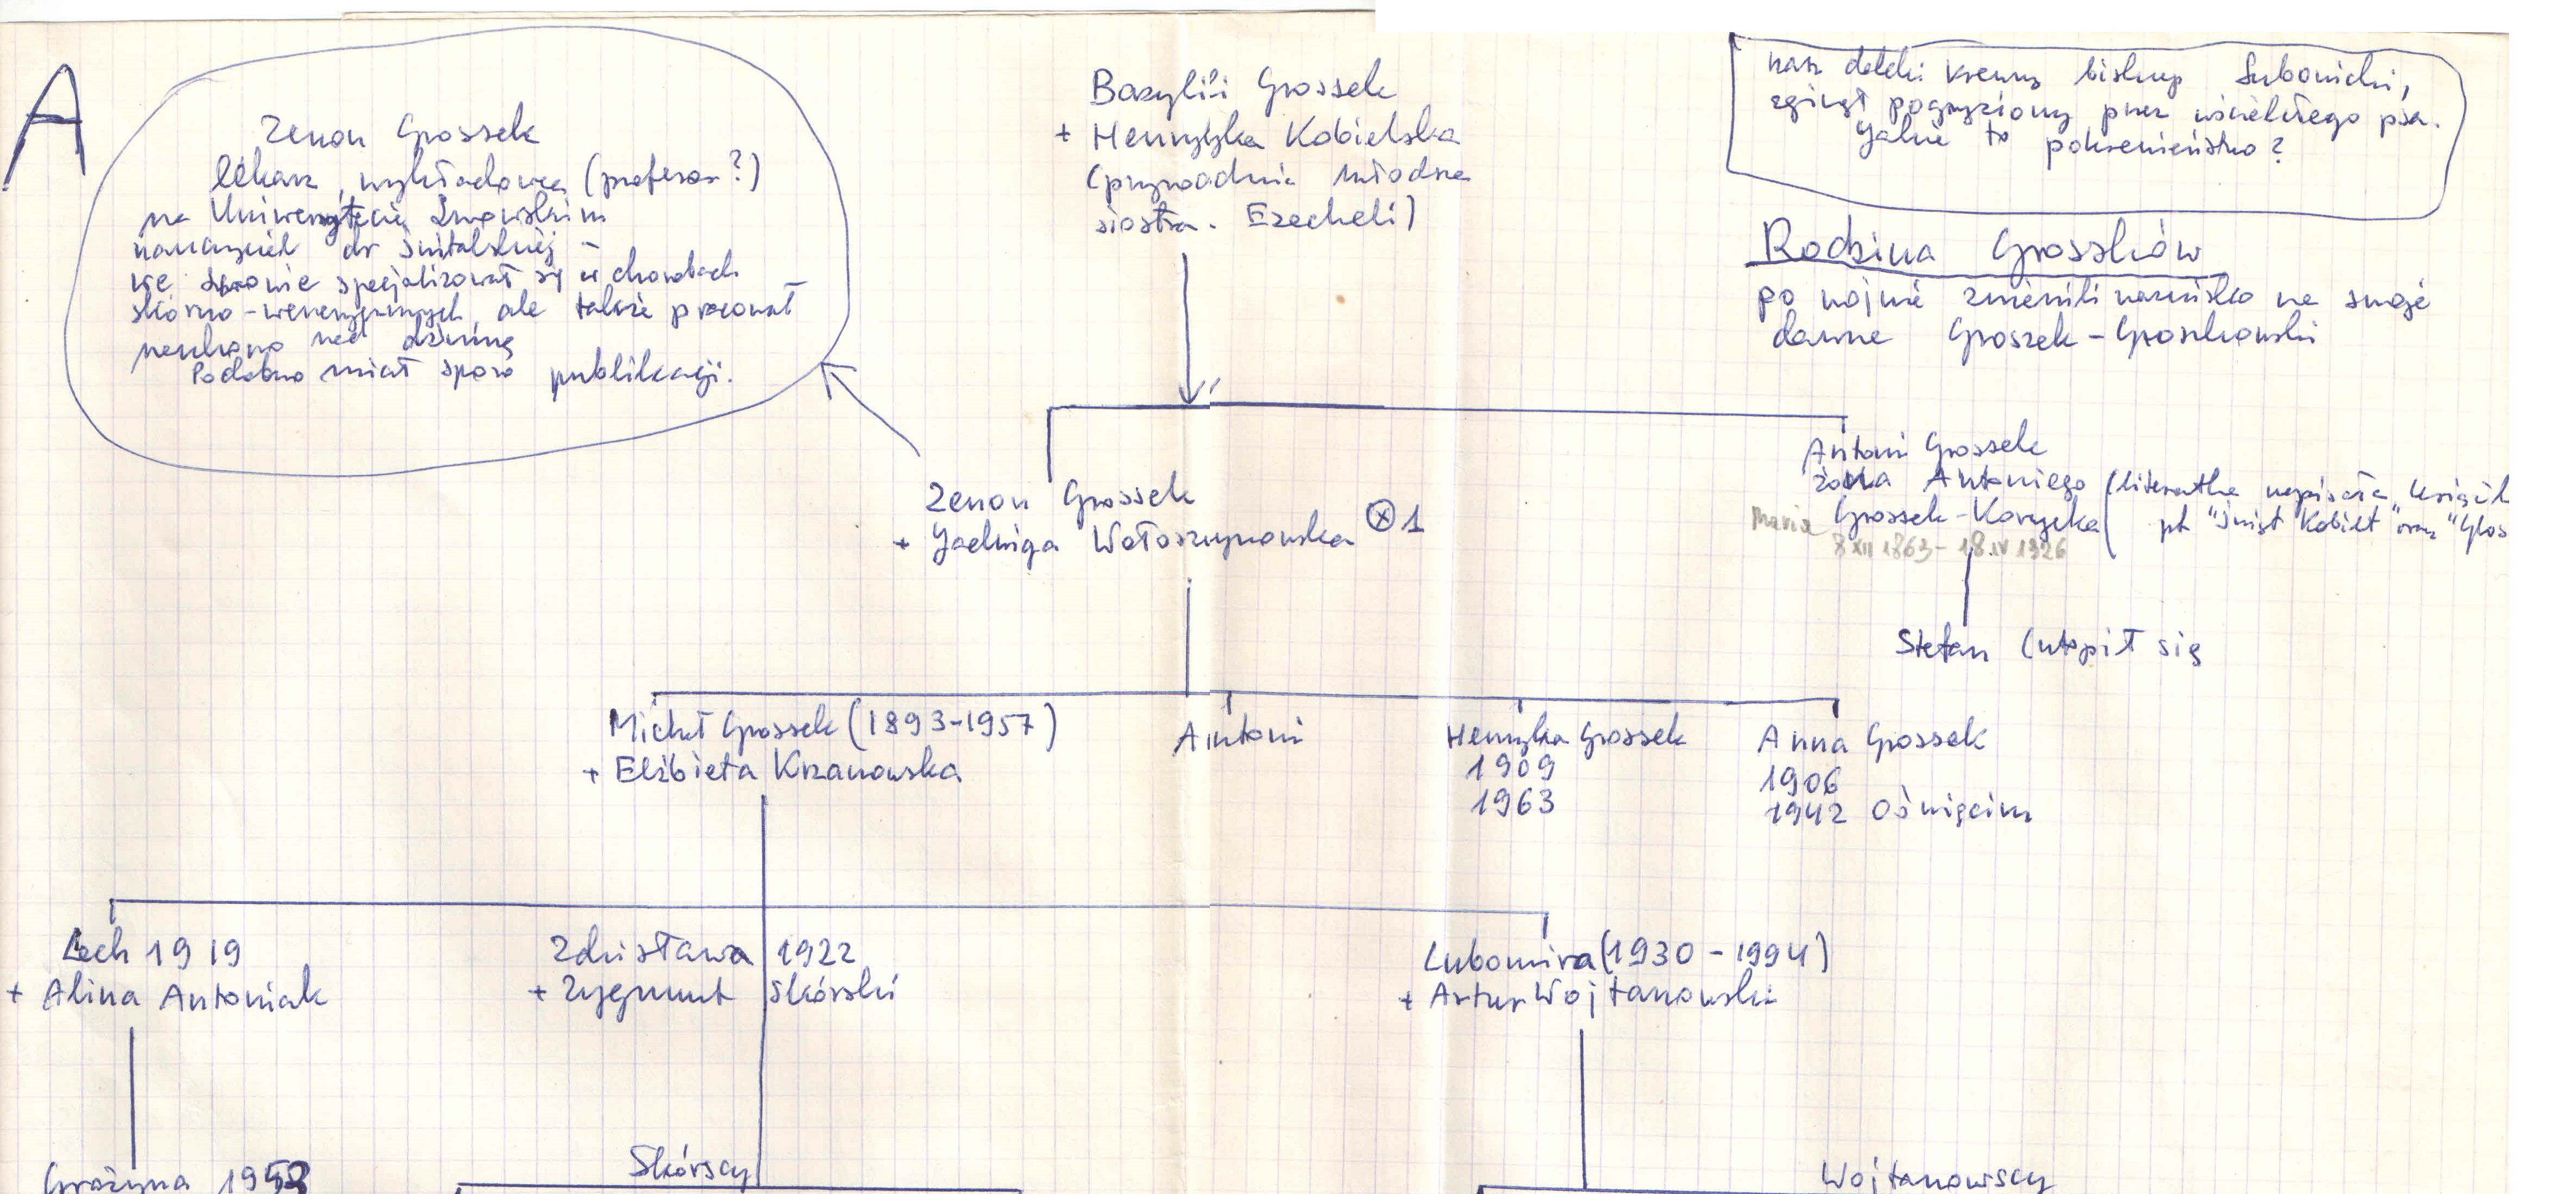 A
Zenon Grossek
lekarz, wykładowca (profesor?)
na Uniwersytecie Lwowskim
nauczyciel dr Śnitalskiej -
we Lwowie specjalizował się w chorobach
skórno-wenerycznych, ale także pracował
naukowo nad dżumą
Podobno miał sporo publikacji.
Bazylii Grossek
+ Henryka Kobielska
(przypadnie młodsza
siostra. Ezecheli)
nasz daleki krewny biskup Łubonicki,
zginął pogryziony przez wściekłego psa.
Jakie to pokrewieństwo?
Rodzina Grossków
po wojnie zmienili nazwisko na swoje
dawne Groszek-Groszkowski
Zenon Grossek
+ Jadwiga Wołoszynowska ⊗1
Antoni Grossek
żona Antoniego (literatka napisała
Maria Grossek-Korycka pt "Świat Kobiet" oraz "Głos
8 XII 1863 - 18.IV 1926
Stefan (utopił się
Michał Grossek (1893-1957)
+ Elżbieta Krzanowska
Antoni
Henryka Grossek
1909
1963
Anna Grossek
1906
1942 Oświęcim
Lech 1919
+ Alina Antoniak
Zdzisława 1922
+ Zygmunt Skórski
Lubomira (1930 - 1994)
+ Artur Wojtanowski
Grażyna 1953
Skórscy
Wojtanowscy